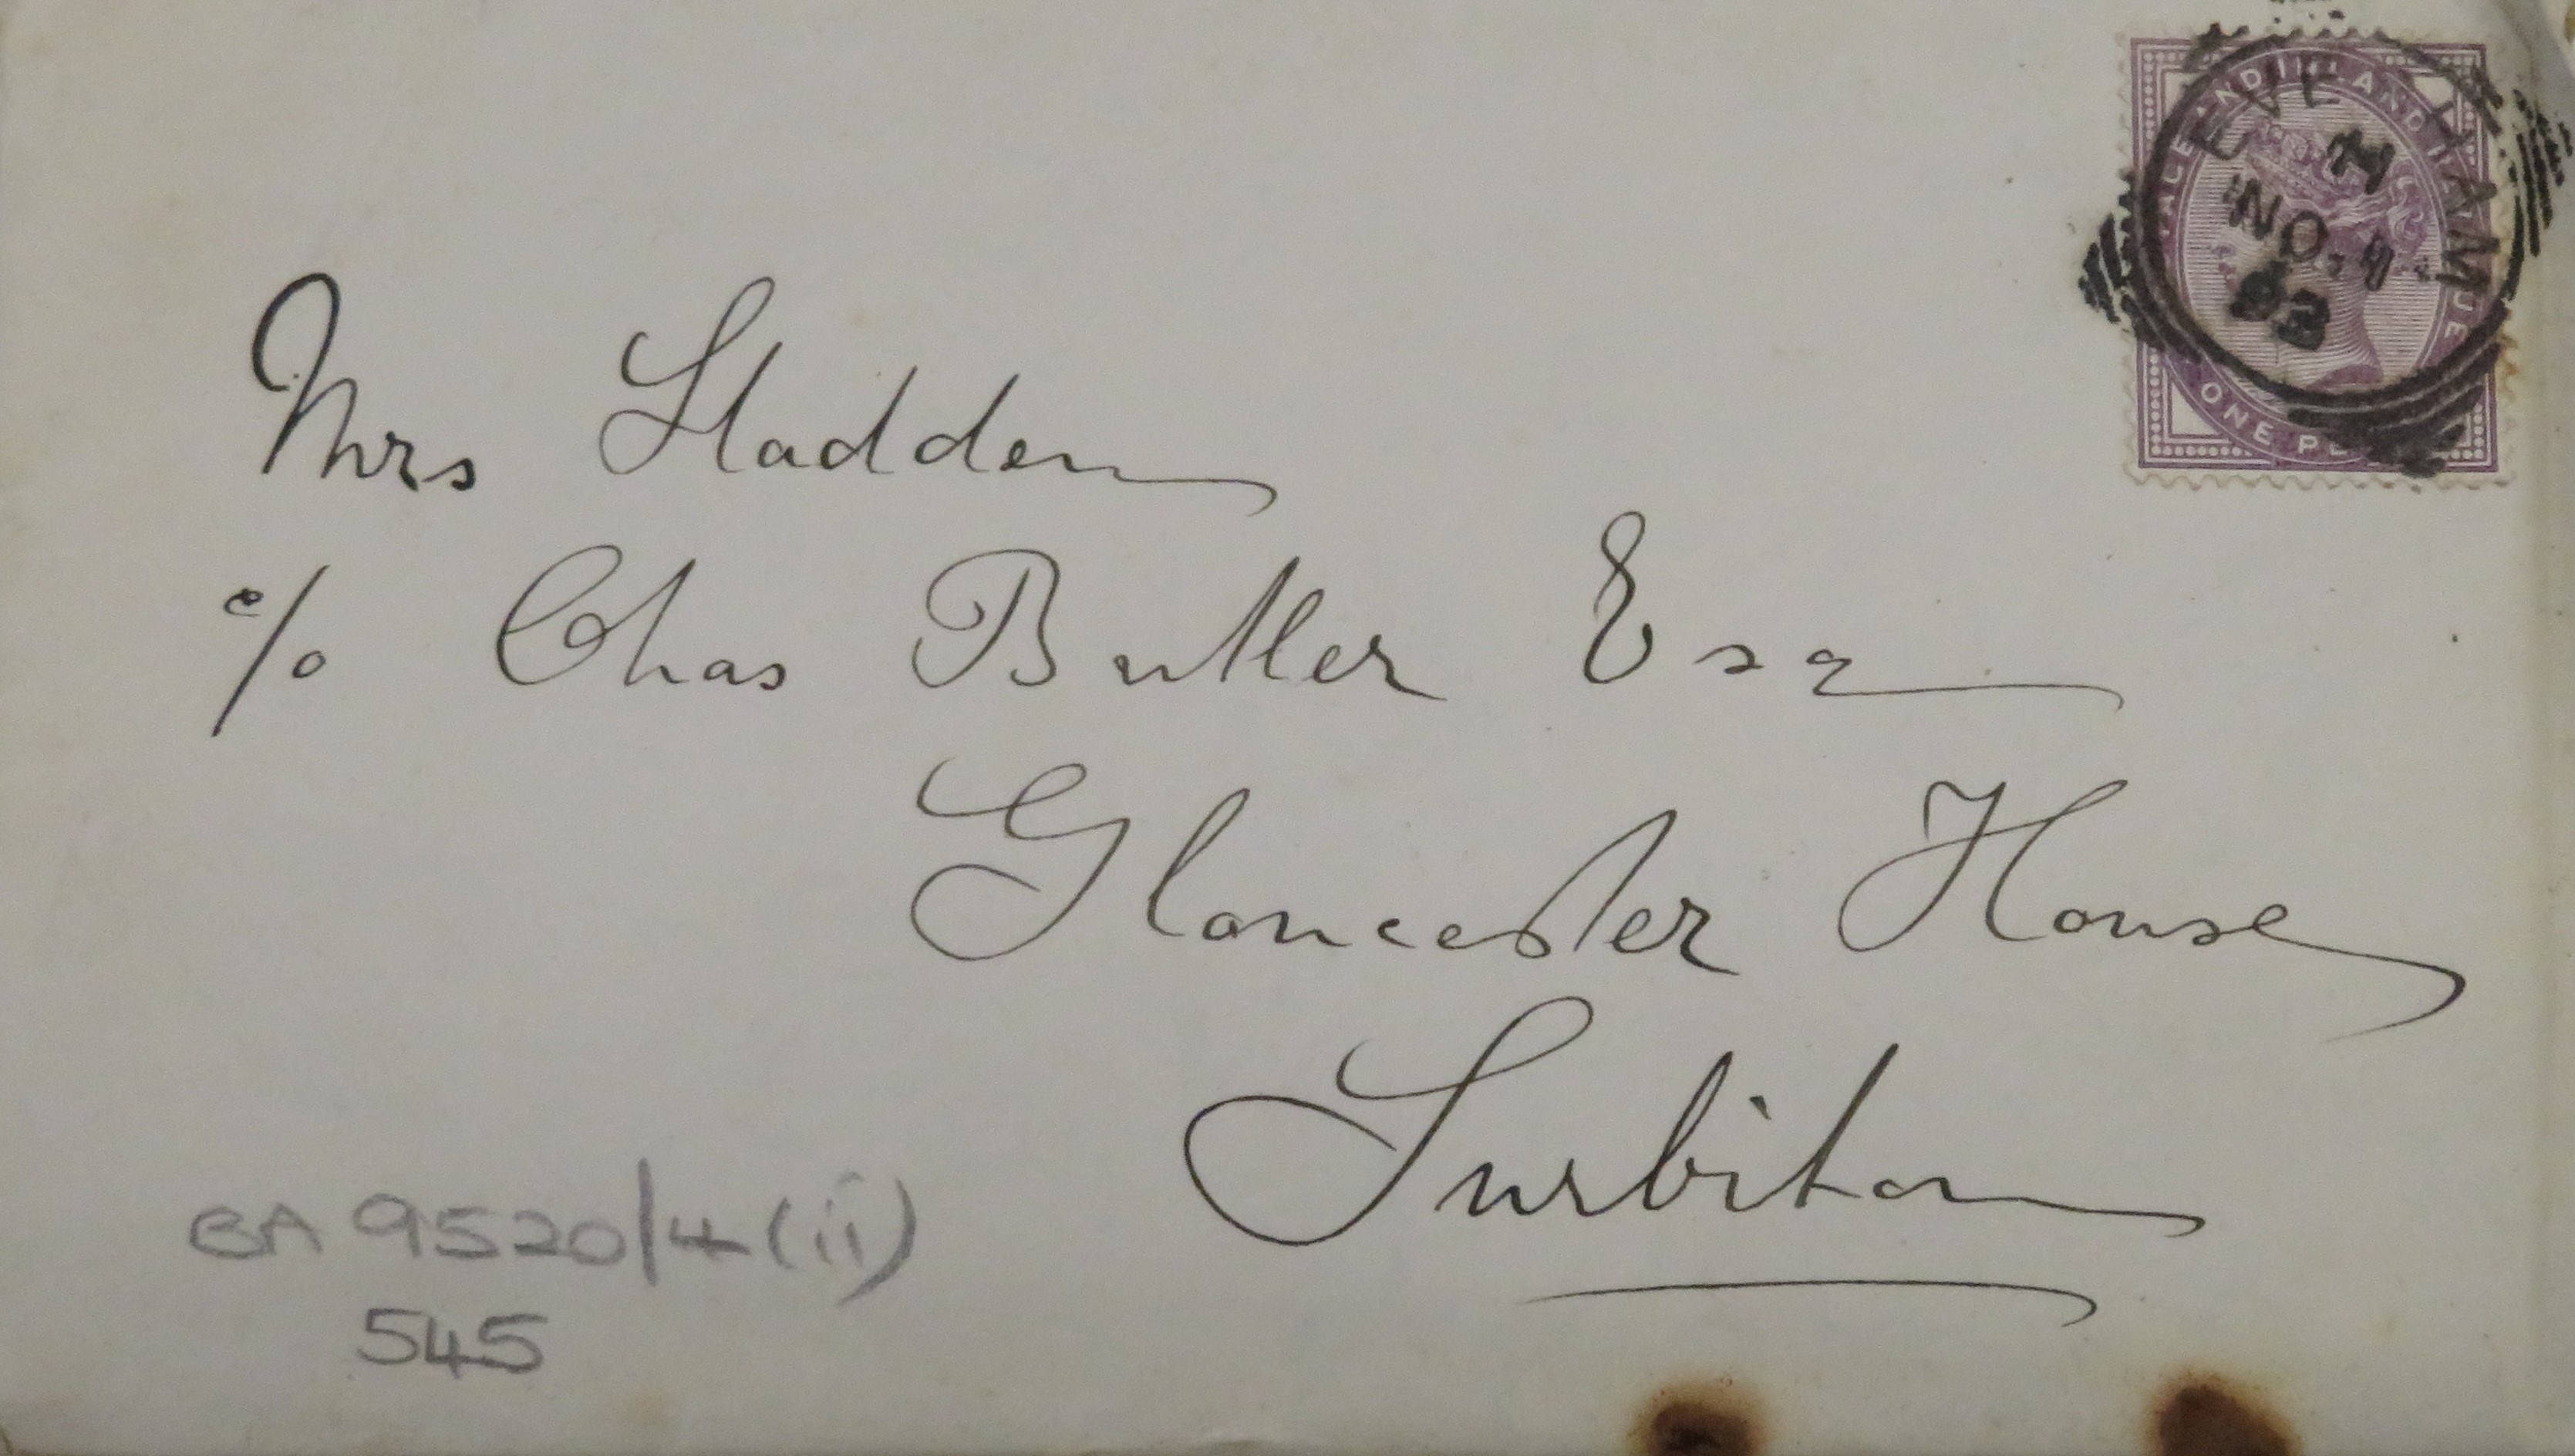 EVESHAM
NO 1
93
POSTAGE AND INLAND REVENUE
ONE PENNY
Mrs Sladden
c/o Chas Butler Esq
Gloucester House
Surbiton
BA 9520/4 (ii)
545